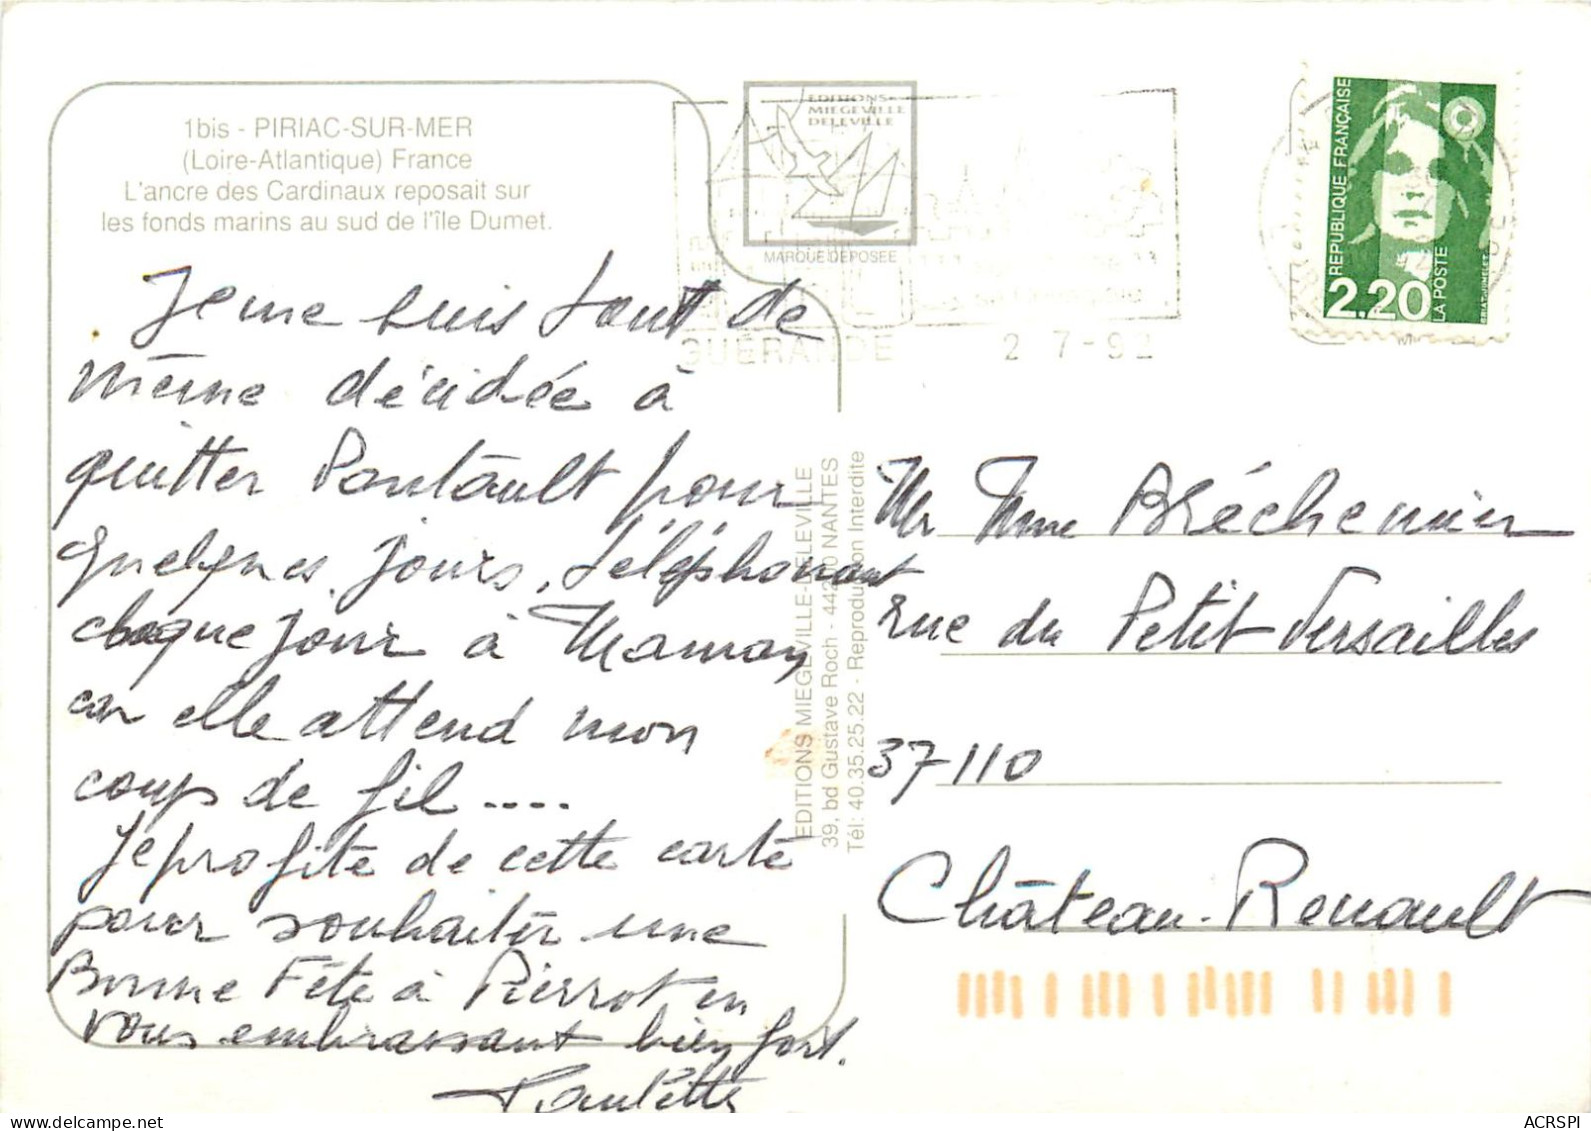 1bis - PIRIAC-SUR-MER
(Loire-Atlantique) France
L'ancre des Cardinaux reposait sur
les fonds marins au sud de l'île Dumet.
EDITIONS
MIEGEVILLE
DELEVILLE
MARQUE DEPOSEE
GUÉRANDE
2 7-92
REPUBLIQUE FRANÇAISE
LA POSTE
2.20
Je me suis tout de
même décidée à
quitter Pontault pour
quelques jours, téléphonant
chaque jour à Maman
car elle attend mon
coup de fil ....
Je profite de cette carte
pour souhaiter une
Bonne Fête à Pierrot en
vous embrassant bien fort.
Paulette
EDITIONS MIEGEVILLE-DELEVILLE
39, bd Gustave Roch - 44200 NANTES
Tél: 40.35.25.22 - Reproduction Interdite
Mr Mme Bréchemier
rue du Petit Versailles
37110
Château-Renault
ACRSPI